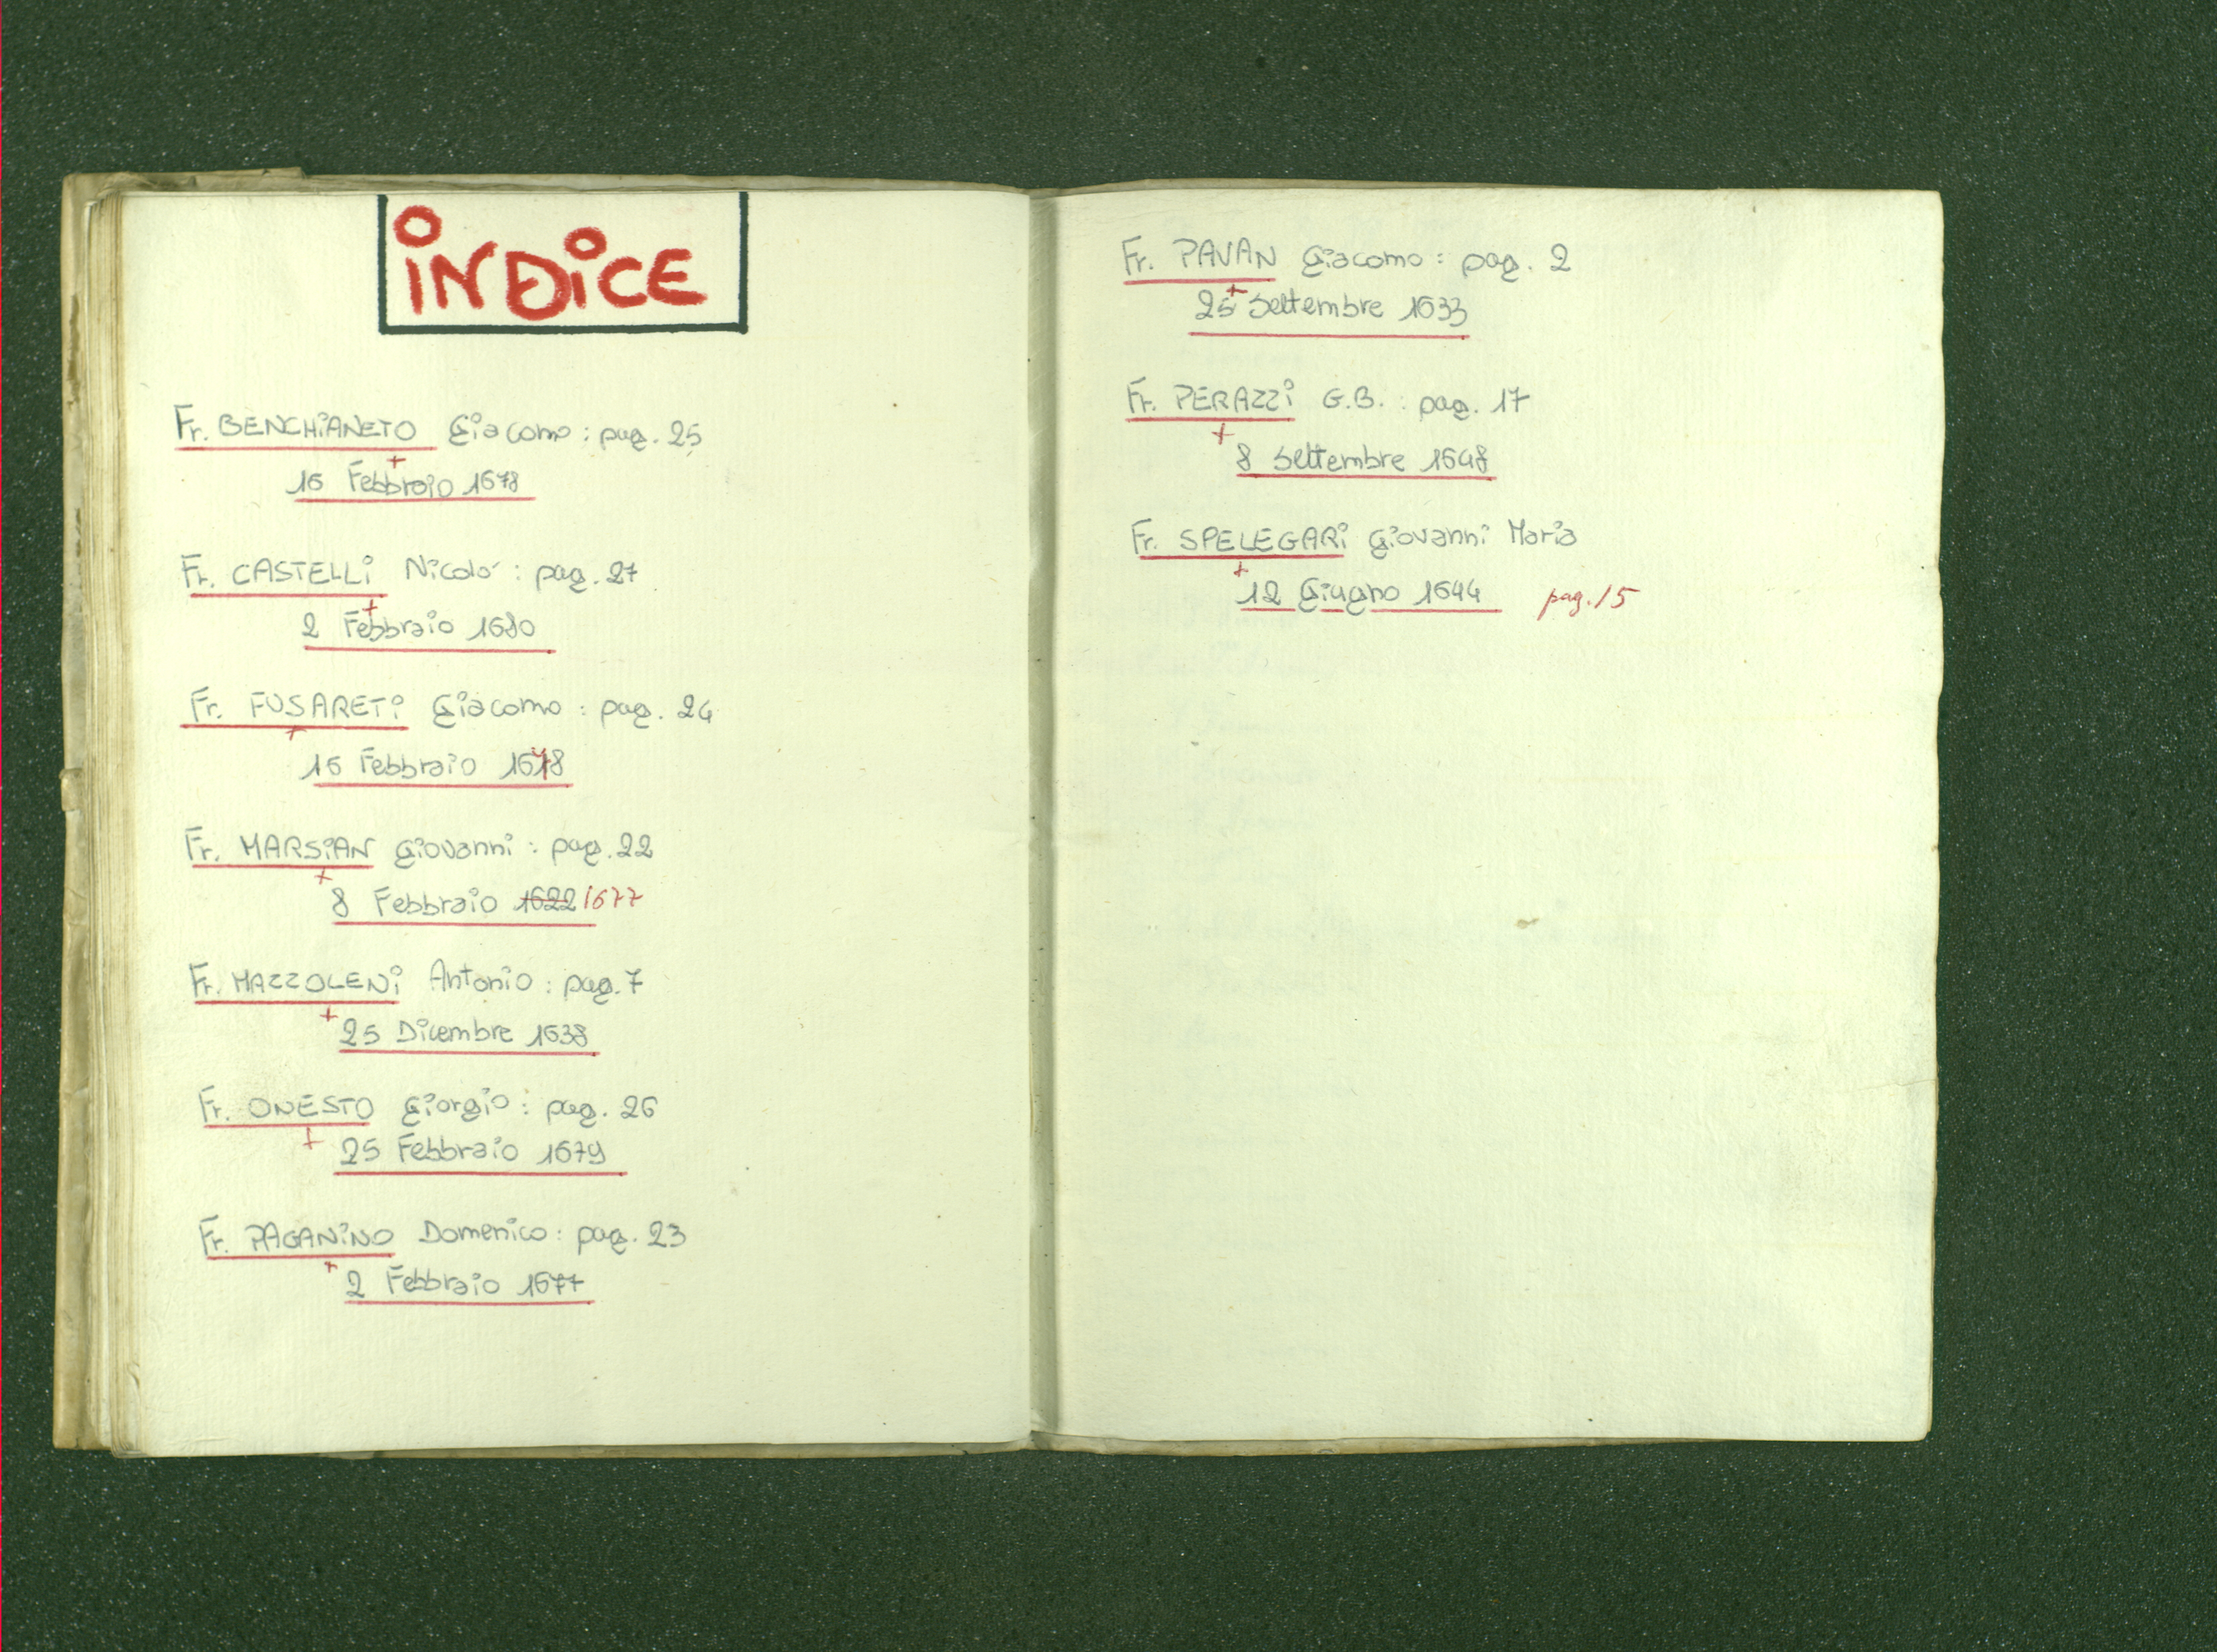 INDICE
Fr. BENCHIANETO Giacomo : pag. 25
+
16 Febbraio 1678
Fr. CASTELLI Nicolo' : pag. 27
+
2 Febbraio 1680
Fr. FUSARETI Giacomo : pag. 24
+
16 Febbraio 1678
Fr. MARSIAN Giovanni : pag. 22
+
8 Febbraio 1622 1677
Fr. MAZZOLENI Antonio : pag. 7
+
25 Dicembre 1638
Fr. ONESTO Giorgio : pag. 26
+
25 Febbraio 1679
Fr. PAGANINO Domenico : pag. 23
+
2 Febbraio 1677
Fr. PAVAN Giacomo : pag. 2
+
25 Settembre 1633
Fr. PERAZZI G.B. : pag. 17
+
8 Settembre 1648
Fr. SPELEGARI Giovanni Maria
+
12 Giugno 1644 pag. 15